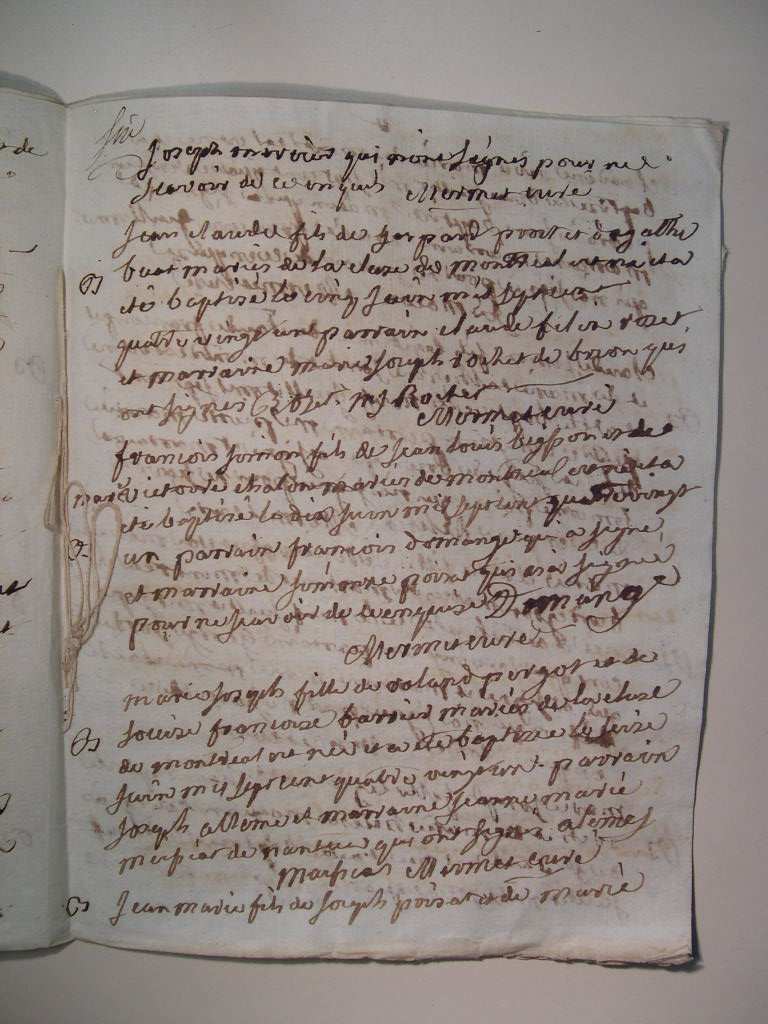 six
joseph qui n'ont signes pour ne
scavoir de ce enquis Mermet curé
jean claude fils de gaspard et d'agathe
buat mariés de la cluse de montreal est né et a
été baptisé le cinq juin mil sept cent
quatre vingt un parrain claude rozet
et marraine marie joseph rochet de brion qui
ont signes Rozet. mj Rochet
Mermet curé
B
françois simon fils de jean louis et de
marie victoire chalon mariés de montreal est né et a
été baptisé le dix juin mil sept cent quatre vingt
un parrain françois domange qui a signé
et marraine simonne poisat qui n'a signé
pour ne scavoir de ce enquise Domange
Mermet curé
B
marie joseph fille de roland purgot et de
louise françoise barrier mariés de la cluse
de montreal est née et a été baptisée le seize
juin mil sept cent quatre vingt un parrain
joseph alleme et marraine jeanne marie
de nantua qui ont signés
Mermet curé
B
jean marie fils de joseph poisat et de marie